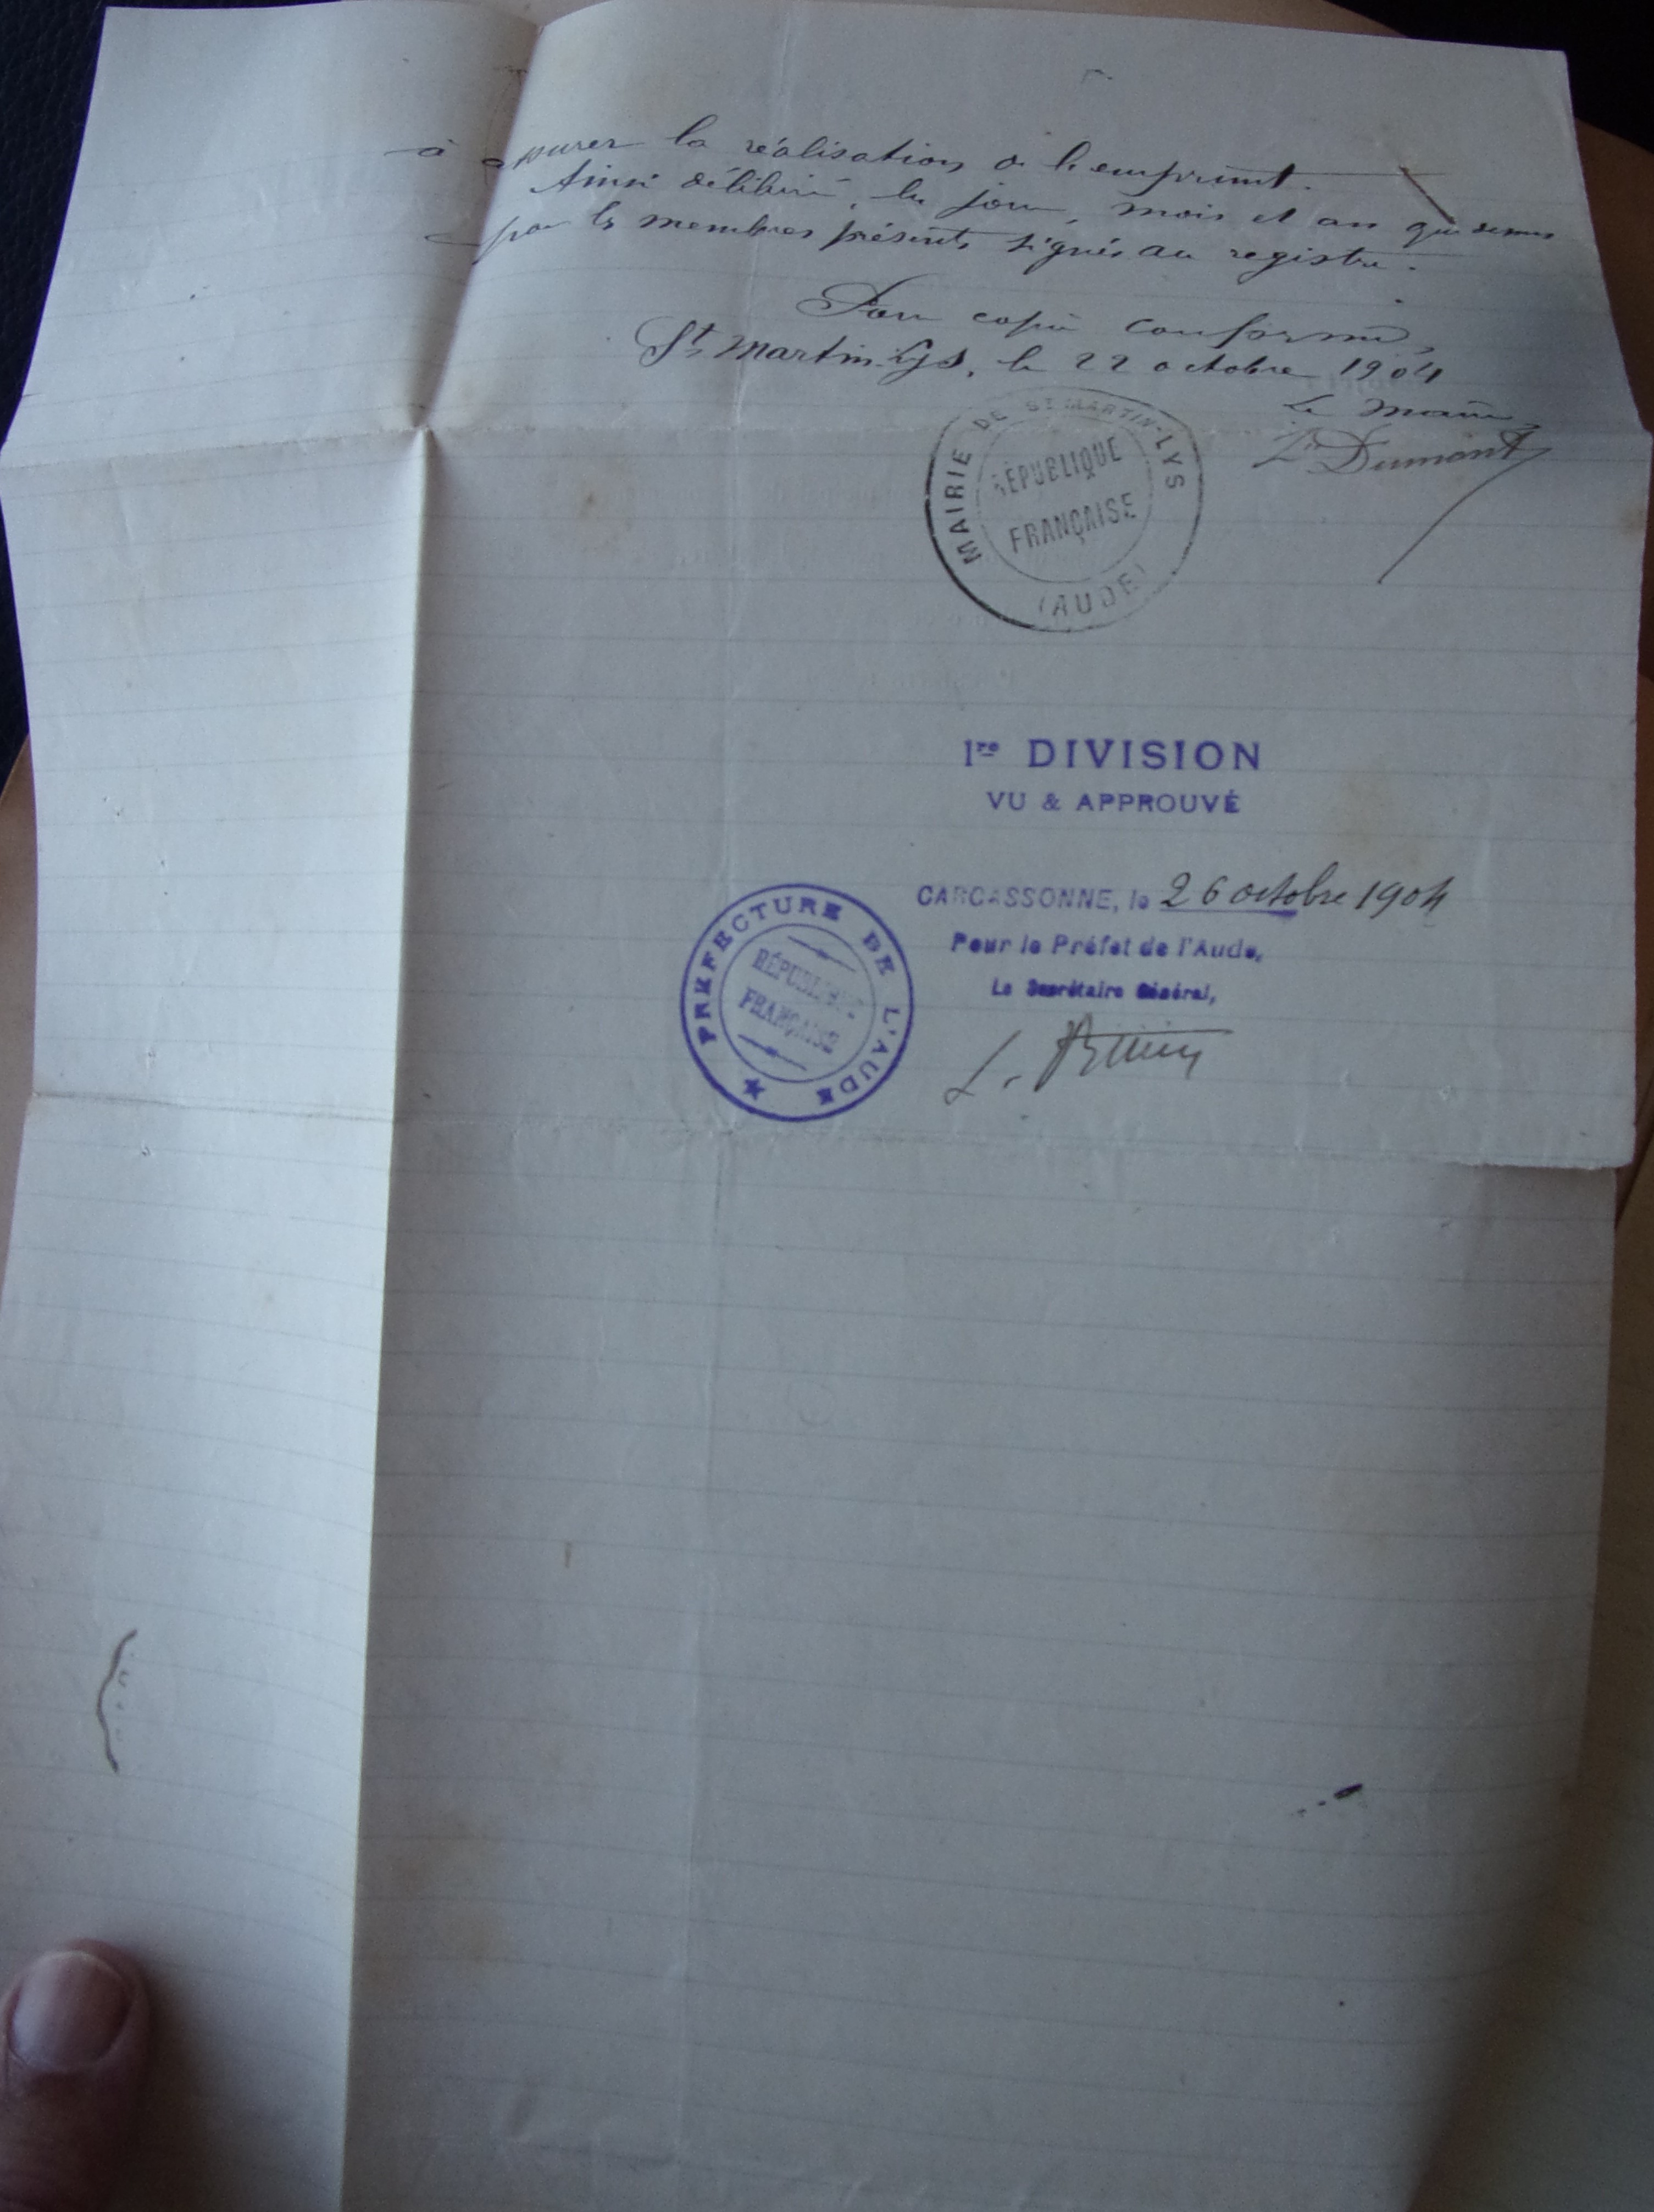 à assurer la réalisation de l'emprunt.
Ainsi délibéré, les jour, mois et an que dessus
par les membres présents signés au registre.
Pour copie conforme,
St Martin-Lys, le 22 octobre 1904
Le Maire,
Dumont
MAIRIE DE ST MARTIN-LYS
RÉPUBLIQUE
FRANÇAISE
(AUDE)
1re DIVISION
VU & APPROUVÉ
CARCASSONNE, le 26 octobre 1904
Pour le Préfet de l'Aude,
Le Secrétaire Général,
PRÉFECTURE DE L'AUDE
RÉPUBLIQUE
FRANÇAISE